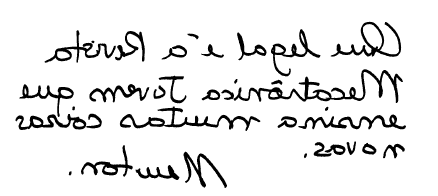 Que legal é a Revista
Mecatrônica Jovem que
ensina muitas coisas
novas.